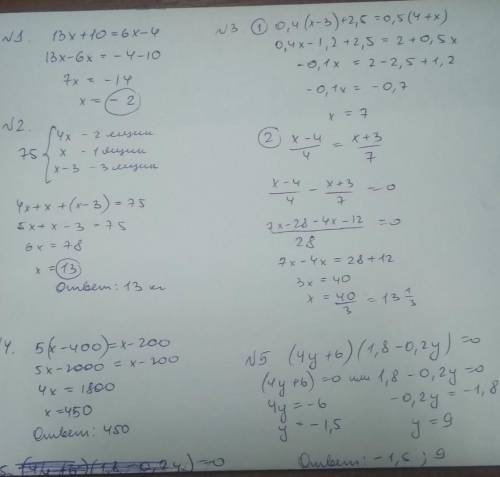 №1. 13x+10=6x-4
13x-6x = -4-10
7x = -14
x = -2
№2.
75 { 4x - 2 ящик
x - 1 ящик
x-3 - 3 ящик
4x+x+(x-3)=75
5x+x-3=75
6x = 78
x = 13
Ответ: 13 кг
4. 5(x-400)=x-200
5x-2000=x-200
4x = 1800
x=450
Ответ: 450
(4y+6)(1,8-0,2y)=0
№3 ① 0,4(x-3)+2,5=0,5(4+x)
0,4x-1,2+2,5=2+0,5x
-0,1x = 2-2,5+1,2
-0,1x = -0,7
x = 7
② (x-4)/4 = (x+3)/7
(x-4)/4 - (x+3)/7 = 0
(7x-28-4x-12)/28 = 0
7x-4x = 28+12
3x = 40
x = 40/3 = 13 1/3
№5 (4y+6)(1,8-0,2y)=0
(4y+6)=0 или 1,8-0,2y=0
4y=-6 -0,2y=-1,8
y=-1,5 y=9
Ответ: -1,5; 9